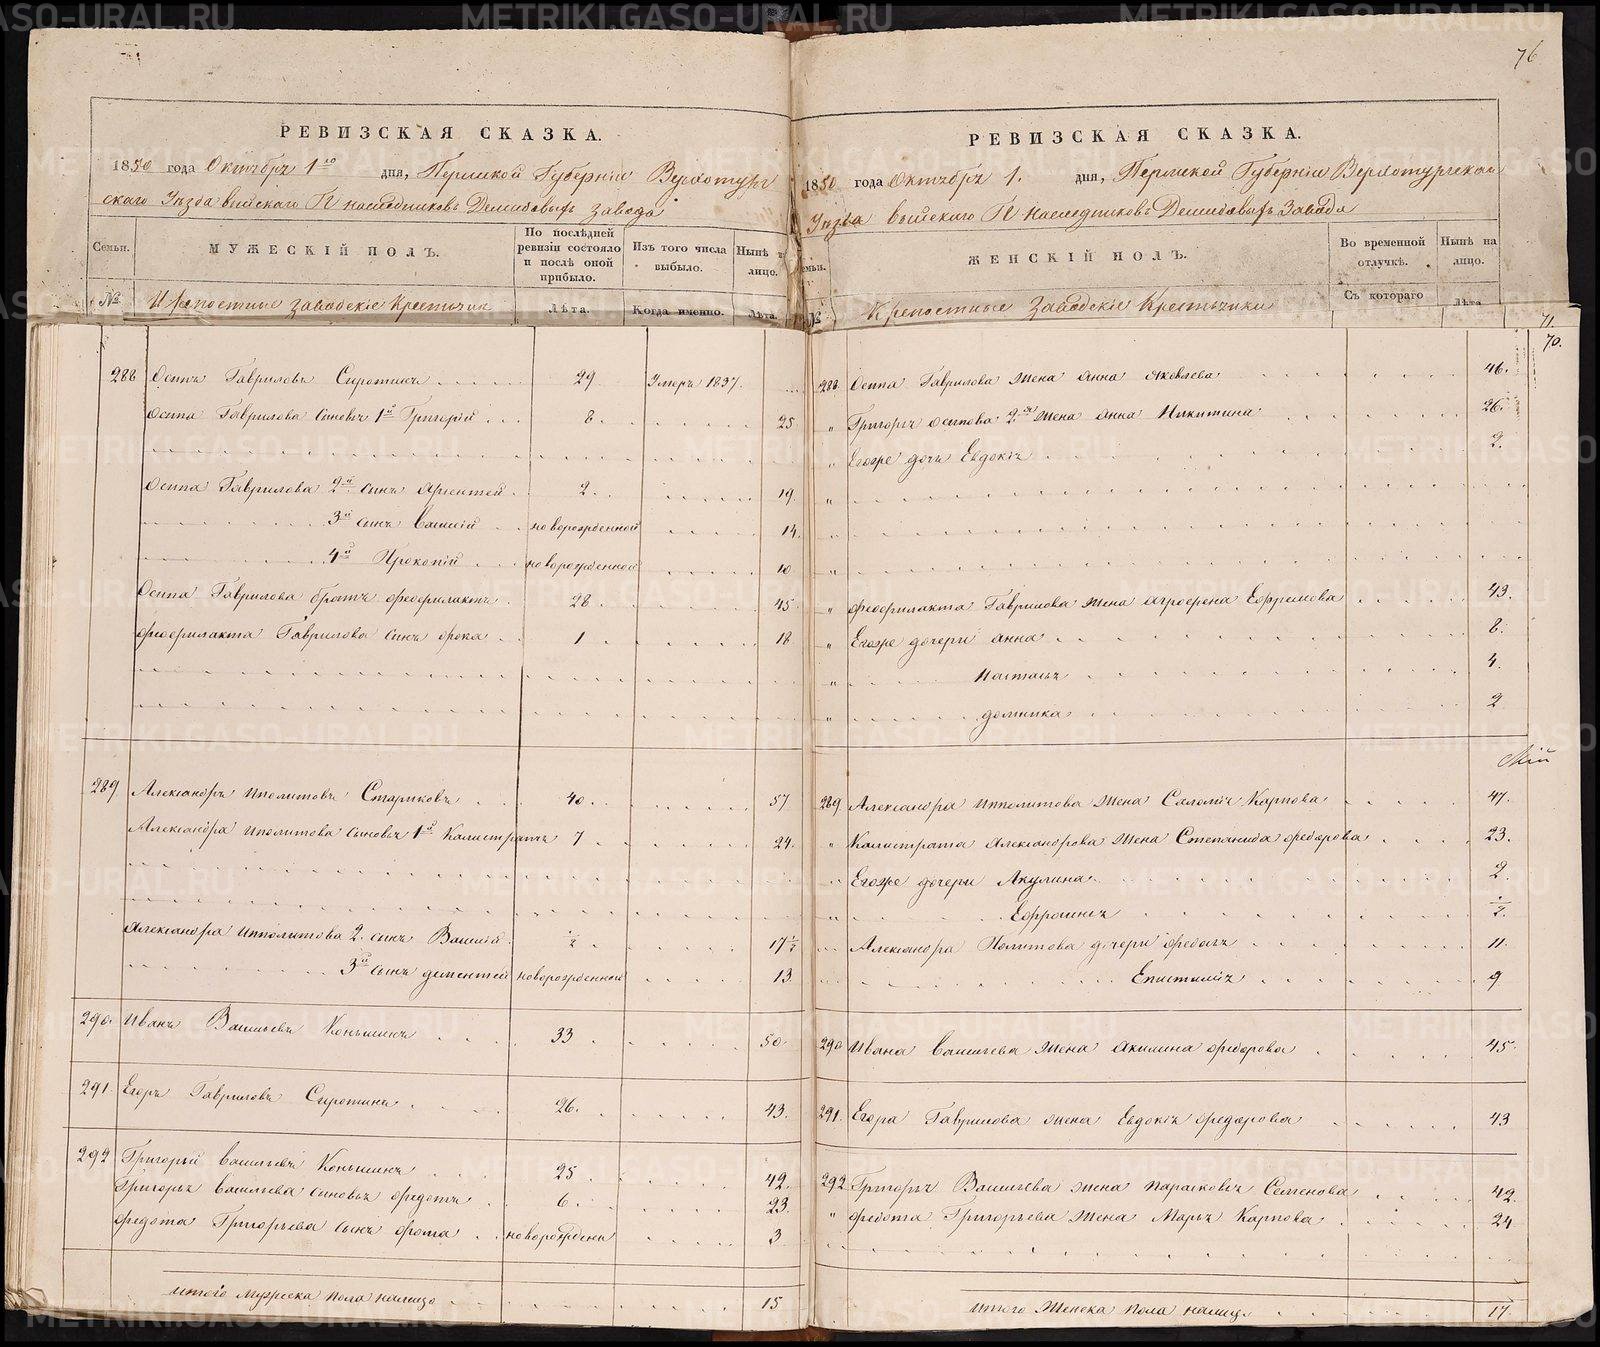 76
РЕВИЗСКАЯ СКАЗКА.
1850 года Октября 1го дня, Пермской Губерніи Верхотурь
скаго Уезда выйскаго Гг наследниковъ Демидовыхъ завода
Семьи. МУЖЕСКІЙ ПОЛЪ. По послѣдней ревизіи состояло и послѣ оной прибыло. Изъ того числа выбыло. Нынѣ лицо.
№ Крепостные Заводскіе Крестьяне Лѣта. Когда именно. Лѣта.
288 Осипъ Гавриловъ Сиротинъ 29 Умеръ 1837.
Осипа Гаврилова сыновья 1й Григорій 8. 25
Осипа Гаврилова 2й сынъ 2. 19
3й сынъ Василій новорожденной 14.
4й Прокопій новорожденной 10
Осипа Гаврилова братъ Феофилактъ 28 45
Феофилакта Гаврилова сынъ Фока 1 18
289 Александръ Иполитовъ Стариковъ 40. 57
Александра Иполитова сыновья 1й Калистратъ 7 24.
Александра Ипполитова 2. сынъ Василій ½ 17½
3й сынъ Дементей новорожденной 13.
290. Иванъ Васильевъ Коньшинъ 33 50.
291 Егоръ Гавриловъ Сиротинъ 26. 43.
292 Григорій Васильевъ Коньшинъ 25 42.
Григорья Васильева сыновья Федотъ 6. 23.
Федота Григорьева сынъ Фома новорожденн 3
итого Мужеска пола налицо 15
РЕВИЗСКАЯ СКАЗКА.
1850 года Октября 1. дня, Пермской Губерніи Верхотурскаго
Уезда выйскаго Гг наследниковъ Демидовыхъ Завода
семьи. ЖЕНСКІЙ ПОЛЪ. Во временной отлучкѣ. Нынѣ на лицо.
№ Крепостные Заводскіе Крестьянки Съ котораго Лѣта
71.
70.
288 Осипа Гаврилова жена Анна Яковлева 46.
" Григорья Осипова 2я жена Анна Никитина 26.
" Егоже дочь Евдокія 2.
" Феофилакта Гаврилова жена Агрофена Ефремова 43.
" Егоже дочери Анна 8.
" Настасья 4.
" Домника 2
289 Александра Ипполитова жена Саломія Карпова 47.
" Калистрата Александрова жена Степанида Федорова 23.
" Егоже дочери Акулина 2.
" Ефросинья ½.
Александра Иполитова дочери 11.
Епистимія 9
290 Ивана Васильева жена Акилина Федорова 45.
291. Егора Гаврилова жена Евдокія Федорова 43
292 Григорья Васильева жена Парасковья Семенова 42.
" Федота Григорьева жена Марья Карпова 24
итого Женска пола налицо 17.
METRIKI.GASO-URAL.RU